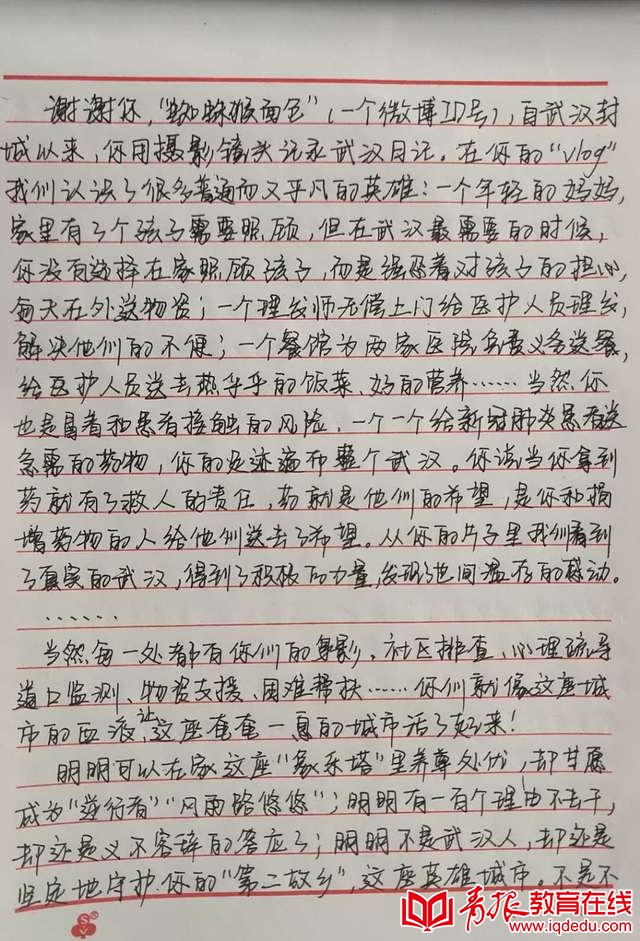 谢谢你，“蜘蛛猴面包”（一个微博ID号），自武汉封
城以来，你用摄影镜头记录武汉日记。在你的“vlog”
我们认识了很多普通而又平凡的英雄：一个年轻的妈妈，
家里有了个孩子需要照顾，但在武汉最需要的时候，
你没有选择在家照顾孩子，而是强忍着对孩子的担心，
每天在外送物资；一个理发师无偿上门给医护人员理发，
解决他们的不便；一个餐馆为两家医院免费义务送餐，
给医护人员送去热乎乎的饭菜、好的营养……当然，你
也是冒着和患者接触的风险，一个一个给新冠肺炎患者送
急需的药物，你的足迹遍布整个武汉。你说当你拿到
药就有了救人的责任，药就是他们的希望，是你和捐
增药物的人给他们送去了希望。从你的片子里我们看到
了真实的武汉，得到了积极的力量，发现了世间温存的感动。
……
当然每一处都有你们的身影。社区排查、心理疏导
道口监测、物资支援、困难帮扶……你们就像这座城
市的血液，让这座奄奄一息的城市活了好来！
明明可以在家这座“象牙塔”里养尊处优，却甘愿
成为“逆行者”“风雨路悠悠”；明明有一百个理由不去干，
却还是义不容辞的答应了；明明不是武汉人，却还是
坚定地守护你的“第二故乡”，这座英雄城市。不是不
青报教育在线
www.iqdedu.com